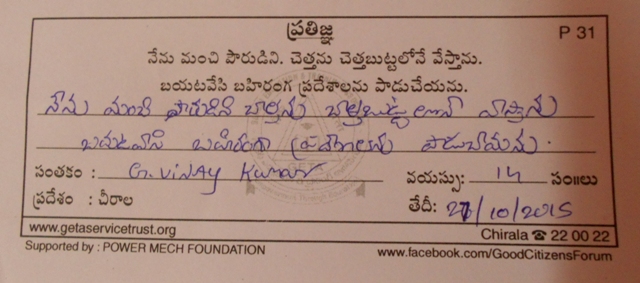 ప్రతిజ్ఞ
P 31
నేను మంచి పౌరుడిని. చెత్తను చెత్తబుట్టలోనే వేస్తాను.
బయటవేసి బహిరంగ ప్రదేశాలను పాడుచేయను.
నేను మంచి
సంతకం : G. Vinay Kumar వయస్సు: 14 సం॥లు
ప్రదేశం : చీరాల తేదీ: 27/10/2015
www.getaservicetrust.org Chirala ☎ 22 00 22
Supported by : POWER MECH FOUNDATION www.facebook.com/GoodCitizensForum